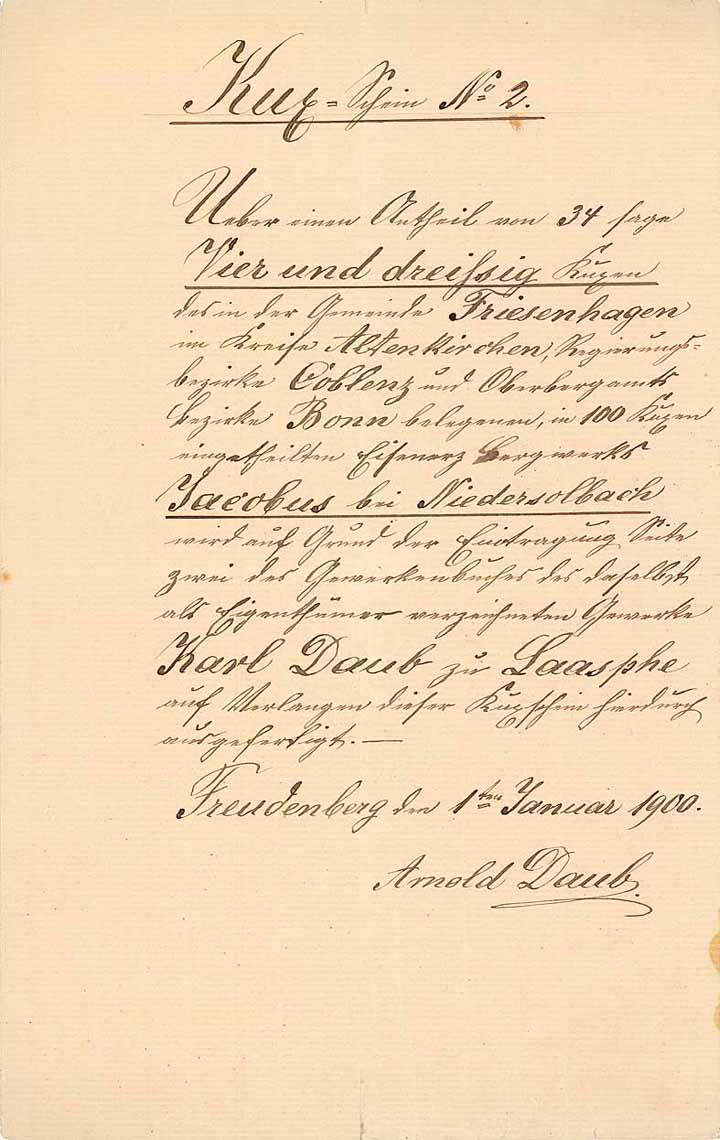 Kux-Schein No 2.
Ueber einen Antheil von 34 sage
Vier und dreissig Kuxen
des in der Gemeinde Friesenhagen
im Kreise Altenkirchen, Regierungs=
bezirke Coblenz und Oberbergamts
bezirke Bonn belegenen, in 100 Kuxen
eingetheilten Eisenerz Bergwerks
Jacobus bei Niedersolbach
wird auf Grund der Eintragung Seite
zwei des Gewerkenbuches des daselbst
als Eigenthümer verzeichneten Gewerke
Karl Daub zu Laasphe
auf Verlangen dieser Kuxschein hierdurch
ausgefertigt. —
Freudenberg den 1ten Januar 1900.
Arnold Daub.